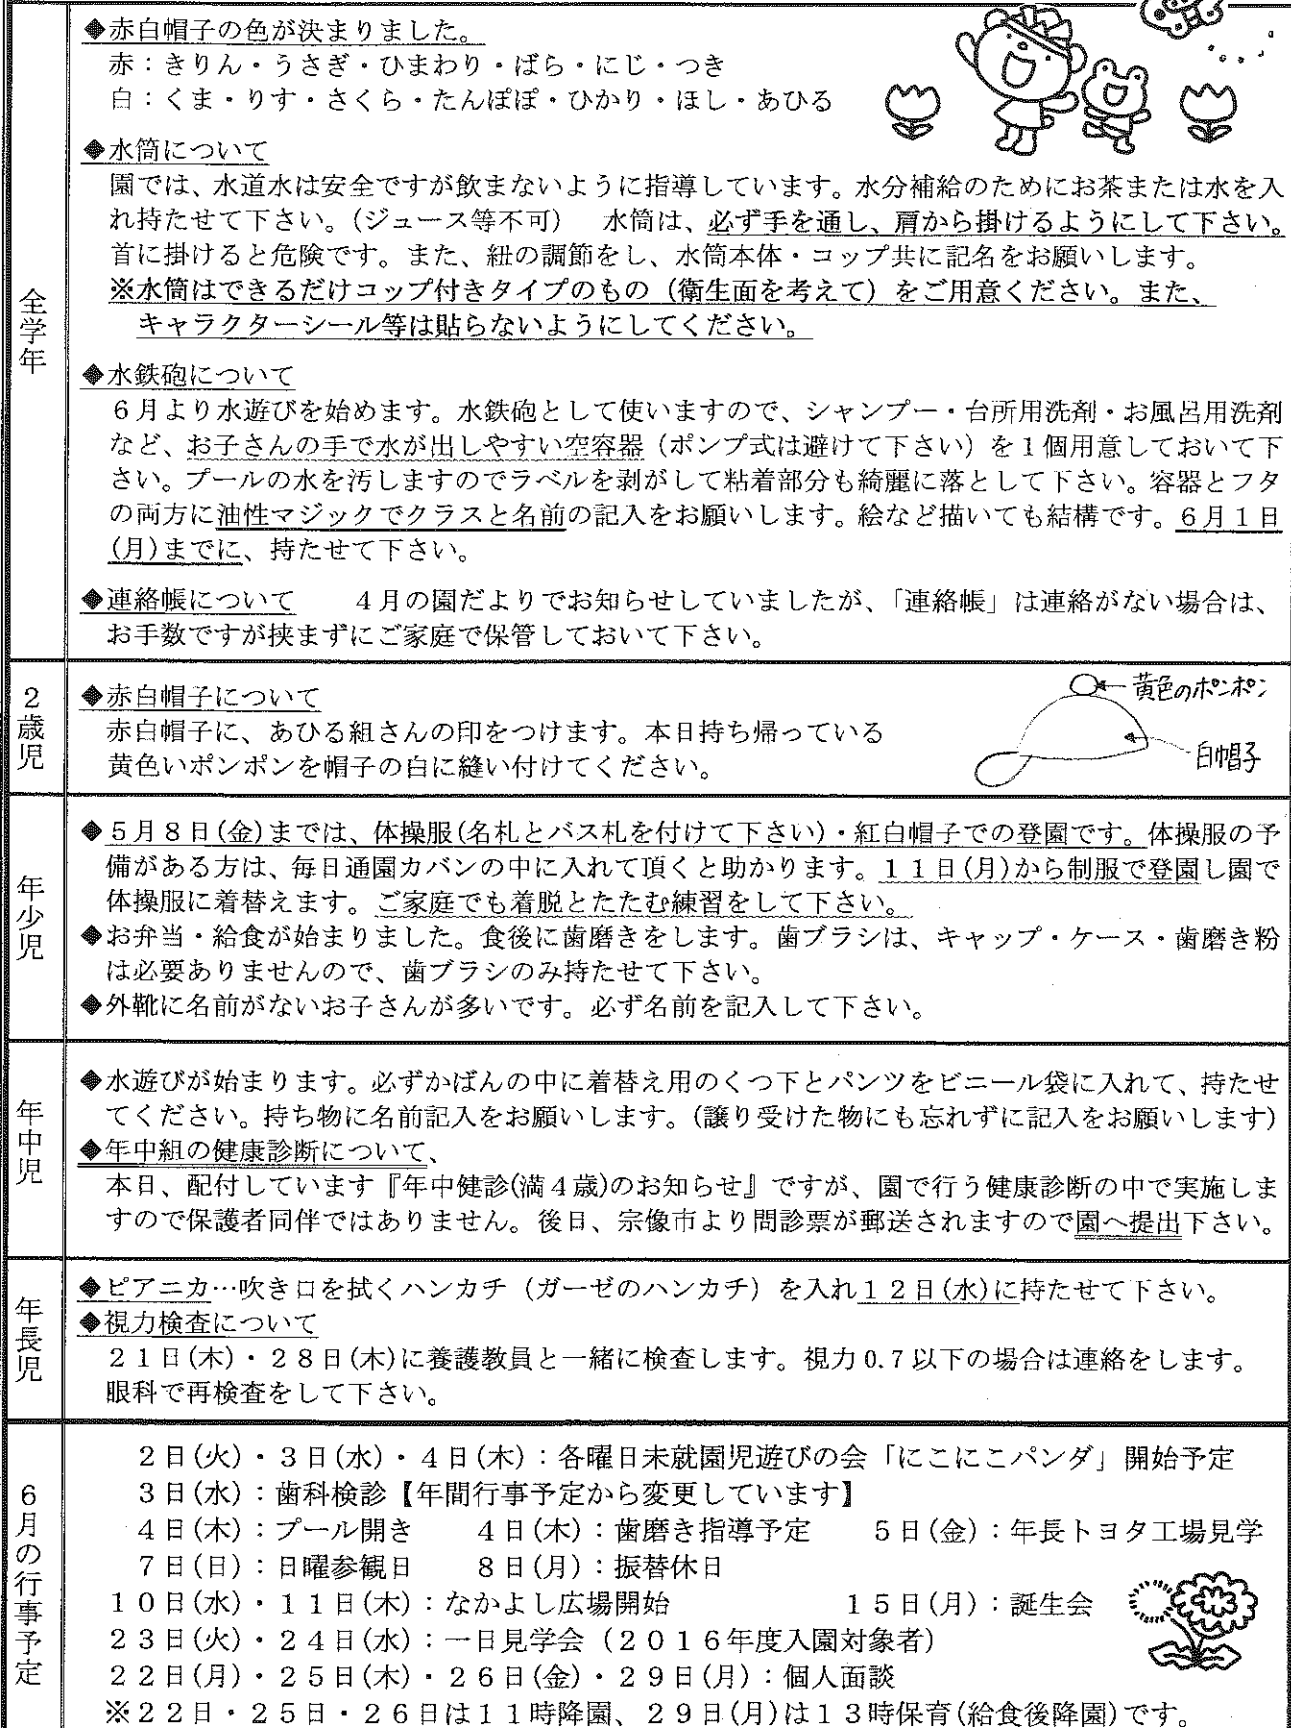 全学年
◆赤白帽子の色が決まりました。
赤：きりん・うさぎ・ひまわり・ばら・にじ・つき
白：くま・りす・さくら・たんぽぽ・ひかり・ほし・あひる
◆水筒について
園では、水道水は安全ですが飲まないように指導しています。水分補給のためにお茶または水を入
れ持たせて下さい。(ジュース等不可)　水筒は、必ず手を通し、肩から掛けるようにして下さい。
首に掛けると危険です。また、紐の調節をし、水筒本体・コップ共に記名をお願いします。
※水筒はできるだけコップ付きタイプのもの（衛生面を考えて）をご用意ください。また、
キャラクターシール等は貼らないようにしてください。
◆水鉄砲について
６月より水遊びを始めます。水鉄砲として使いますので、シャンプー・台所用洗剤・お風呂用洗剤
など、お子さんの手で水が出しやすい空容器（ポンプ式は避けて下さい）を１個用意しておいて下
さい。プールの水を汚しますのでラベルを剥がして粘着部分も綺麗に落として下さい。容器とフタ
の両方に油性マジックでクラスと名前の記入をお願いします。絵など描いても結構です。６月１日
(月)までに、持たせて下さい。
◆連絡帳について　　４月の園だよりでお知らせしていましたが、「連絡帳」は連絡がない場合は、
お手数ですが挟まずにご家庭で保管しておいて下さい。
２歳児
◆赤白帽子について
赤白帽子に、あひる組さんの印をつけます。本日持ち帰っている
黄色いポンポンを帽子の白に縫い付けてください。
黄色のポンポン
白帽子
年少児
◆５月８日(金)までは、体操服(名札とバス札を付けて下さい)・紅白帽子での登園です。体操服の予
備がある方は、毎日通園カバンの中に入れて頂くと助かります。１１日(月)から制服で登園し園で
体操服に着替えます。ご家庭でも着脱とたたむ練習をして下さい。
◆お弁当・給食が始まりました。食後に歯磨きをします。歯ブラシは、キャップ・ケース・歯磨き粉
は必要ありませんので、歯ブラシのみ持たせて下さい。
◆外靴に名前がないお子さんが多いです。必ず名前を記入して下さい。
年中児
◆水遊びが始まります。必ずかばんの中に着替え用のくつ下とパンツをビニール袋に入れて、持たせ
てください。持ち物に名前記入をお願いします。(譲り受けた物にも忘れずに記入をお願いします)
◆年中組の健康診断について、
本日、配付しています『年中健診(満４歳)のお知らせ』ですが、園で行う健康診断の中で実施しま
すので保護者同伴ではありません。後日、宗像市より問診票が郵送されますので園へ提出下さい。
年長児
◆ピアニカ…吹き口を拭くハンカチ（ガーゼのハンカチ）を入れ１２日(水)に持たせて下さい。
◆視力検査について
２１日(木)・２８日(木)に養護教員と一緒に検査します。視力0.7以下の場合は連絡をします。
眼科で再検査をして下さい。
６月の行事予定
２日(火)・３日(水)・４日(木)：各曜日未就園児遊びの会「にこにこパンダ」開始予定
３日(水)：歯科検診【年間行事予定から変更しています】
４日(木)：プール開き　　４日(木)：歯磨き指導予定　　５日(金)：年長トヨタ工場見学
７日(日)：日曜参観日　　８日(月)：振替休日
１０日(水)・１１日(木)：なかよし広場開始　　１５日(月)：誕生会
２３日(火)・２４日(水)：一日見学会（２０１６年度入園対象者）
２２日(月)・２５日(木)・２６日(金)・２９日(月)：個人面談
※２２日・２５日・２６日は１１時降園、２９日(月)は１３時保育(給食後降園)です。